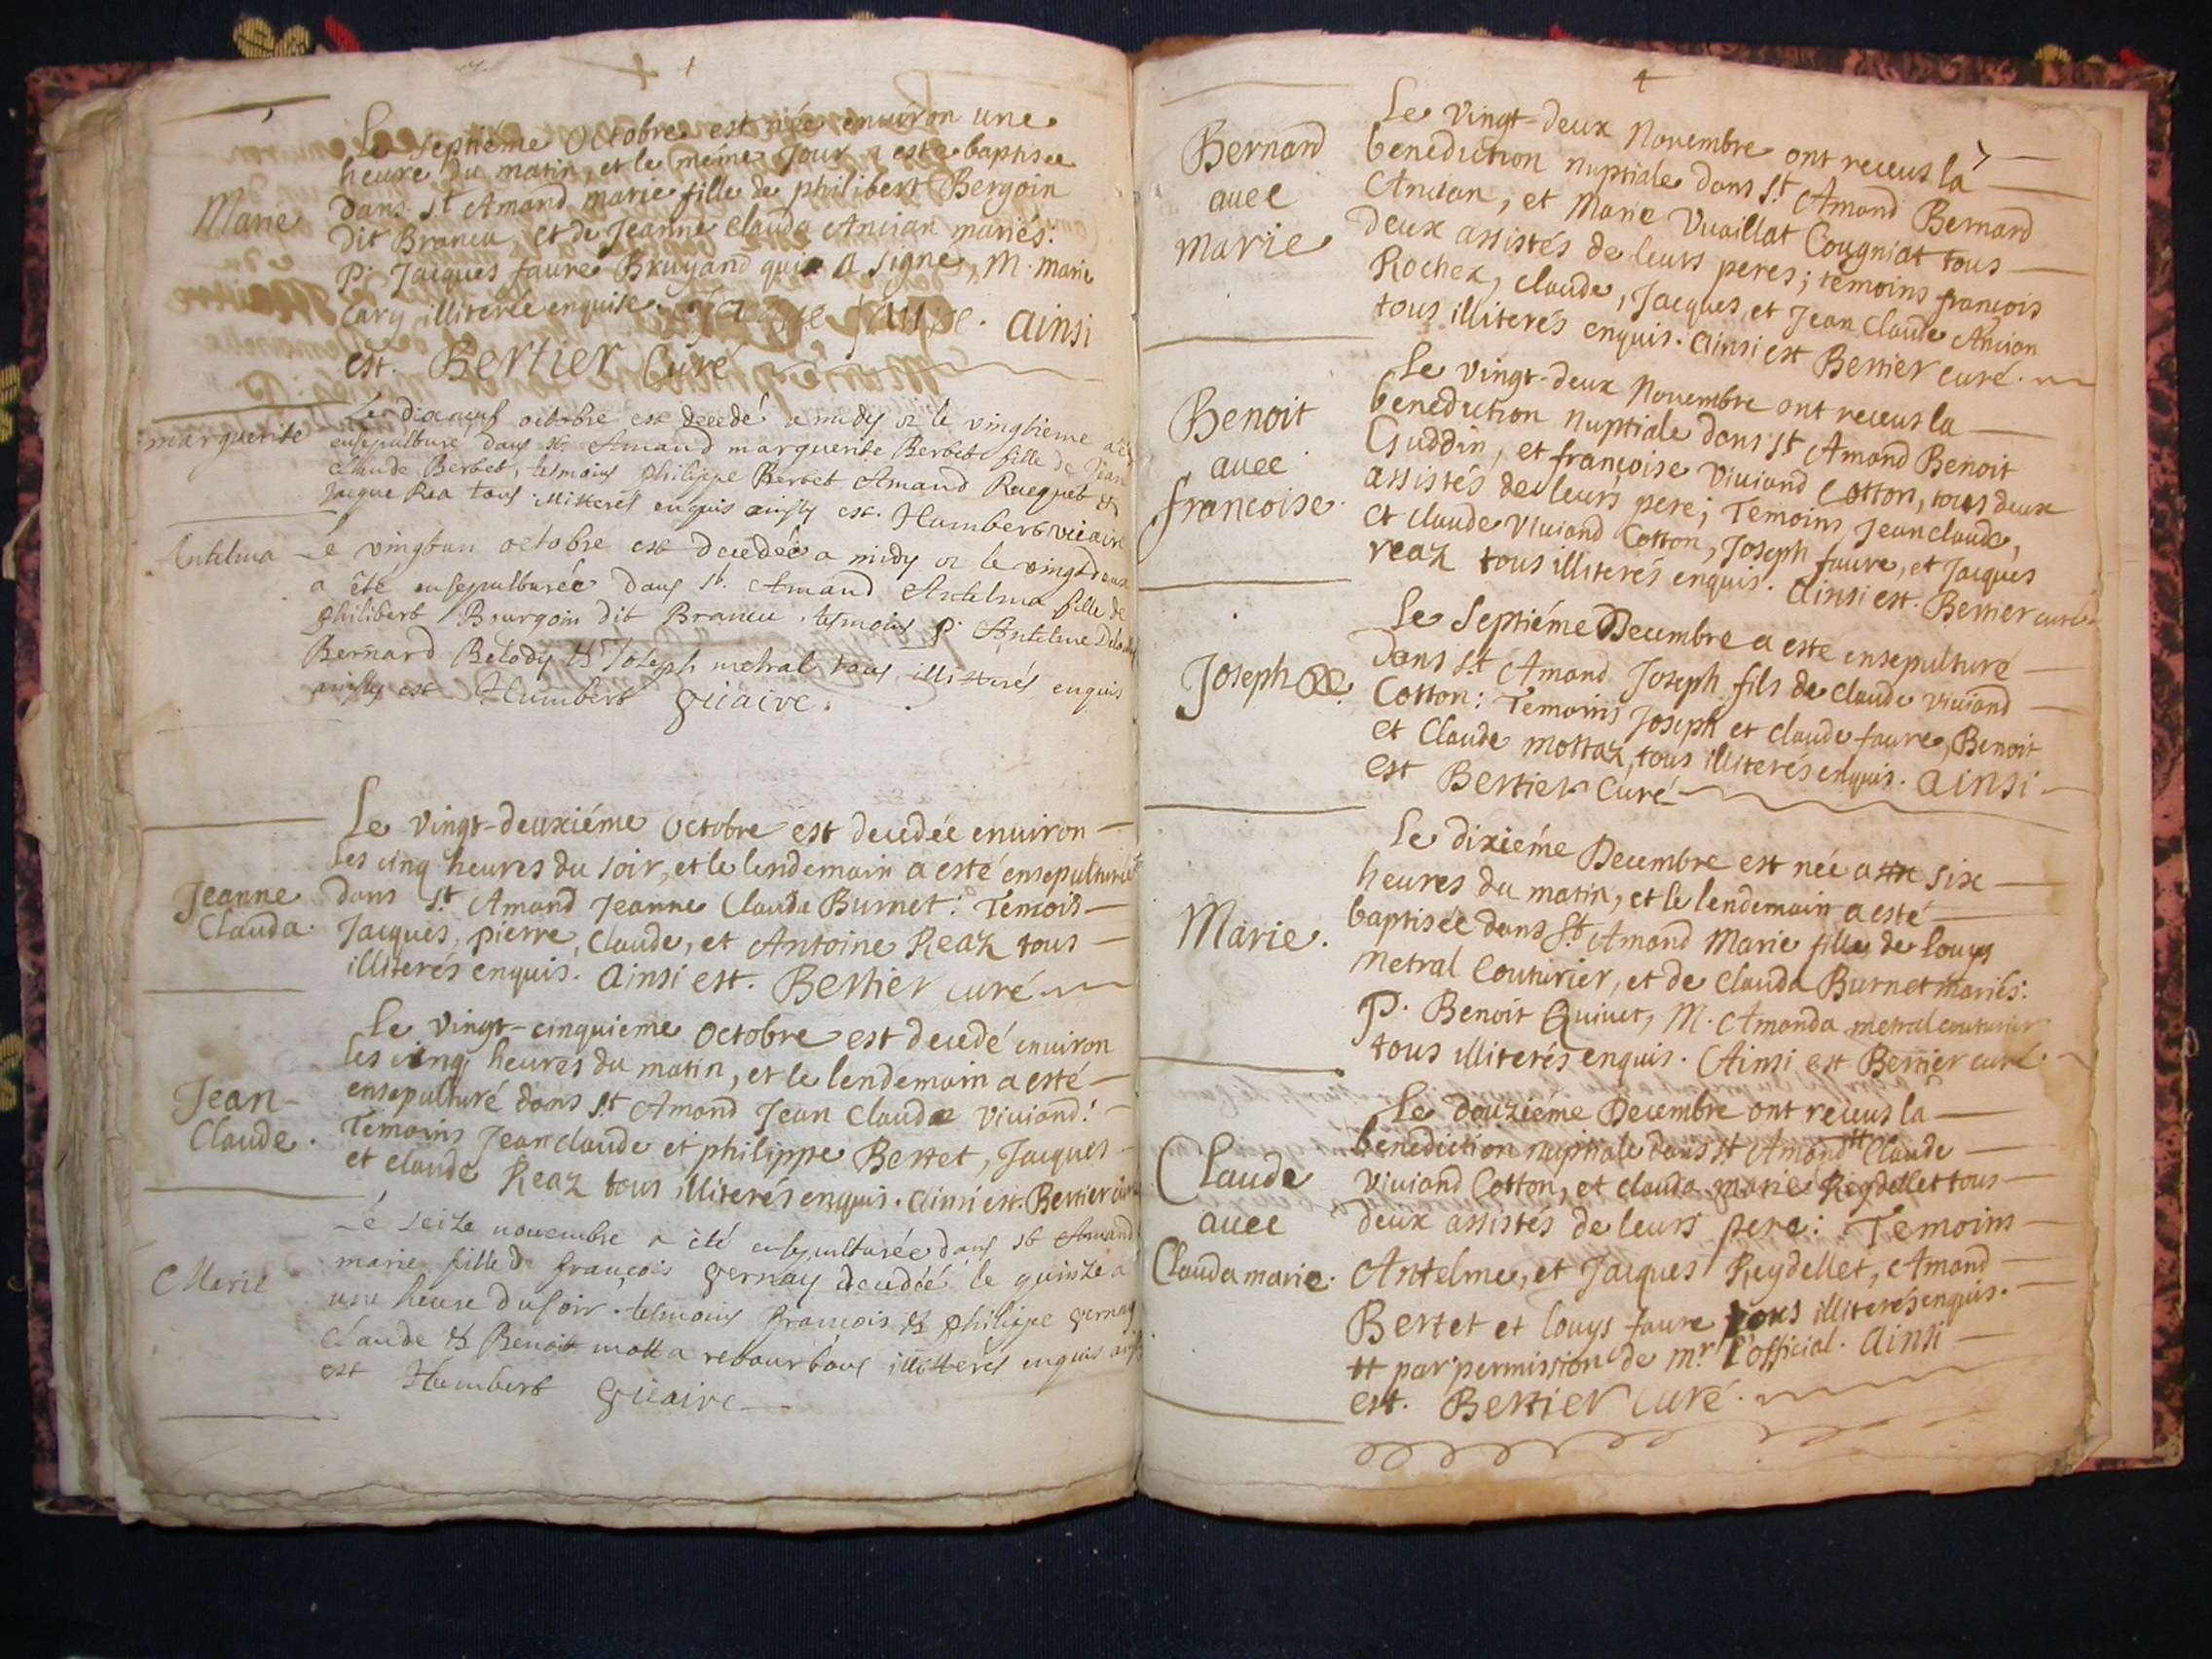 Le septiéme Octobre est née enuiron une
heure du matin, et le méme Jour a esté baptisée
Marie
dans St Amand marie fille de philibert Bergoin
dit Brancu, et de Jeanne Clauda Ancian mariés:
P. Jacques faure Bruyand qui a signe, M. marie
Cary illiterée enquise. Jacque faure. Ainsi
est. Bertier Curé
Le dixneuf octobre est decedé a midy & le vingtieme a été
marguerite
ensepulturé dans st. Amand marguerite Berbet fille de Jean
Claude Berbet, tesmoins Philippe Berbet Amand Racquet &
Jacque Rea tous illitterés enquis ainsy est. Humbert vicaire
Antelma
Le vingtun octobre est decedée a midy & le vingtdeux
a été ensepulturée dans st. Amand Antelma fille de
Philibert Bourgoin dit Brancu, tesmoins P. Antelme
Bernard Belody & Joseph metral tous illitterés enquis
ainsy est Humbert Vicaire.
Le vingt-deuxiéme Octobre est decedée enuiron
les cinq heures du soir, et le lendemain a esté ensepulturée
Jeanne
Clauda.
dans St Amand Jeanne Clauda Burnet: Temois
Jacques, pierre, Claude, et Antoine Reaz tous
illiterés enquis. Ainsi est. Bertier curé
Le vingt-cinquieme Octobre est decedé enuiron
les cinq heures du matin, et le lendemain a esté
Jean-
Claude.
ensepulturé dans St Amand Jean Claude Viuiand:
Temoins Jean claude et philippe Bertet, Jacques
et claude Reaz tous illiterés enquis. Ainsi est. Bertier curé
Le seize nouembre a été ensepulturée dans st Amand
Marie
marie fille de françois Vernay decedée le quinze a
une heure du soir. tesmoins françois & Philippe Vernay
Claude & Benoit motta rebour tous illitterés enquis ainsy
est Humbert Vicaire
Le vingt-deux Nouembre ont receus la
Bernard
auec
marie
benediction nuptiale dans St Amand Bernard
Ancian, et Marie Vuaillat Cougniat tous
deux assistés de leurs peres; temoins françois
Rochex, claude, Jacques, et Jean Claude Ancian
tous illiterés enquis. Ainsi est Bertier curé.
Le vingt-deux Nouembre ont receus la
Benoit
auec
francoise.
benediction nuptiale dans St Amand Benoit
Guddin, et françoise Viuiand Cotton, tous deux
assistés de leurs pere; Temoins Jean claude,
et claude Viuiand Cotton, Joseph faure, et Jacques
reaz tous illiterés enquis. Ainsi est. Bertier curé
Le septiéme Decembre a esté ensepulturé
Joseph
dans St Amand Joseph fils de Claude Viuiand
Cotton: Temoins Joseph et claude faure, Benoit
et Claude Mottaz, tous illiterés enquis. Ainsi
est Bertier Curé
Le dixiéme Decembre est née a six
heures du matin, et le lendemain a esté
Marie.
baptisée dans St Amand Marie fille de louys
metral Couturier, et de Clauda Burnet mariés:
P. Benoit Quiuet, M. Amanda metral couturier
tous illiterés enquis. Ainsi est Bertier curé.
Le douziéme Decembre ont receus la
Claude
auec
Clauda marie.
benediction nuptiale dans St Amand tt Claude
Viuiand Cotton, et clauda marie Reydellet tous
deux assistés de leurs pere: Temoins
Antelme, et Jacques Reydellet, Amand
Bertet et louys faure tous illiterés enquis.
tt par permission de mr l'official. Ainsi
est. Bertier Curé.